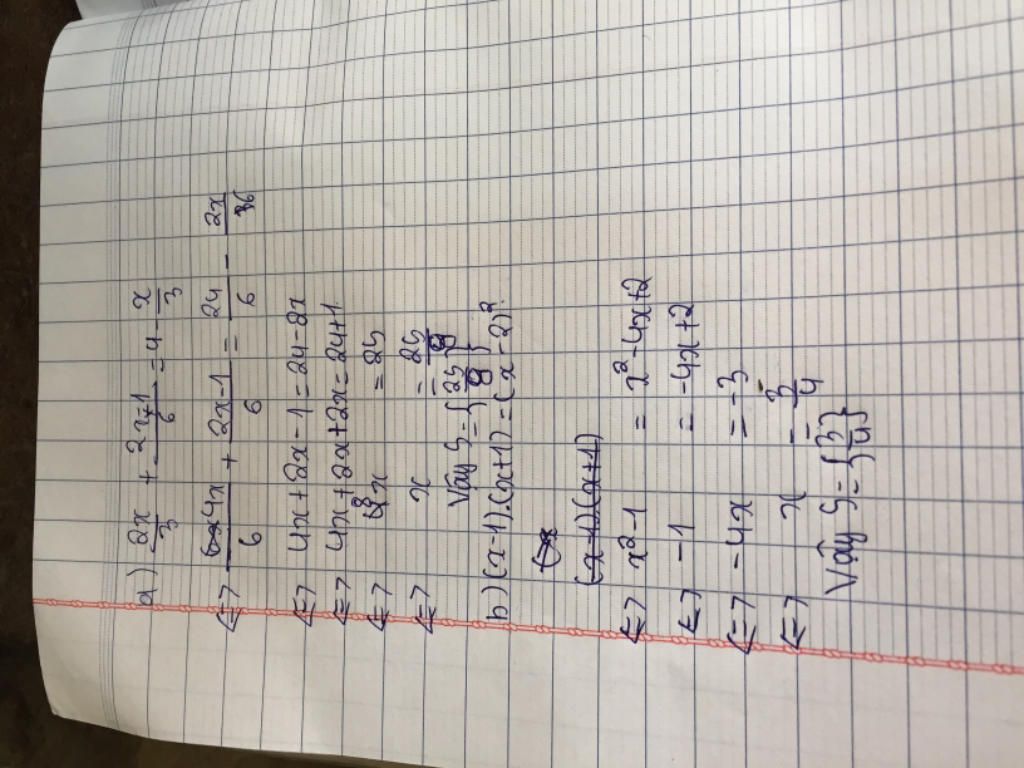 a) 2x/3 + 2x-1/6 = 4 - x/3
<=> 4x/6 + 2x-1/6 = 24/6 - 2x/6
<=> 4x+2x-1=24-2x
<=> 4x+2x+2x=24+1
<=> 8x = 25
<=> x = 25/8
Vậy S={25/8}
b) (x-1).(x+1)=(x-2)².
(x-1)(x+1)
<=> x²-1 = x²-4x+2
<=> -1 = -4x+2
<=> -4x = -3
<=> x = 3/4
Vậy S={3/4}